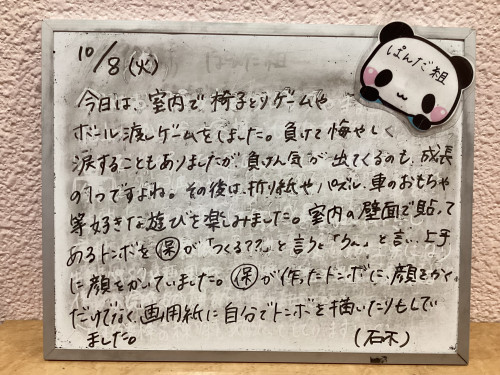 10/8(火)
ぱんだ組
今日は、室内で椅子とりゲームや
ボール渡しゲームをしました。負けて悔やしく
涙することもありましたが負けん気が出てくるのも、成長
の1つですよね。その後は、折り紙やパズル、車のおもちゃ
等好きな遊びを楽しみました。室内の壁面で貼って
あるトンボを㋭が「つくる??」と言うと「うん。」と言い、上手
に顔をかいていました。㋭が作ったトンボに、顔をかく
だけでなく、画用紙に自分でトンボを描いたりもしてい
ました。
(石木)